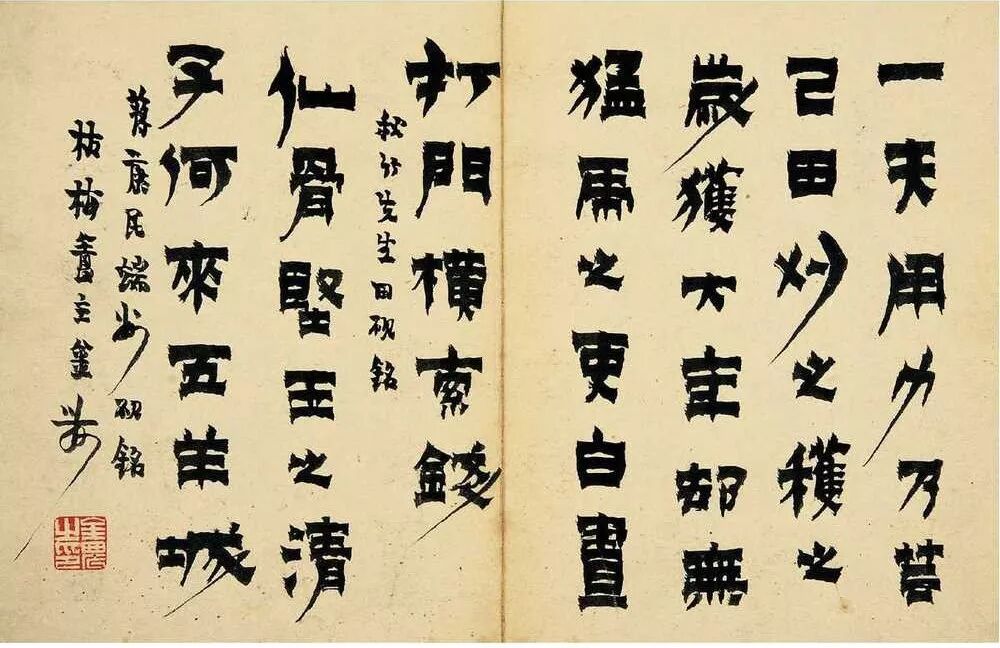 一夫用力乃
己田刈之穫之
歲獲大却無
猛虎之吏白晝
打門橫索錢
竹先生田硯銘
仙骨堅玉之清
子何來五羊城
康民端州硯銘
枯梅盦主金農
金農之印